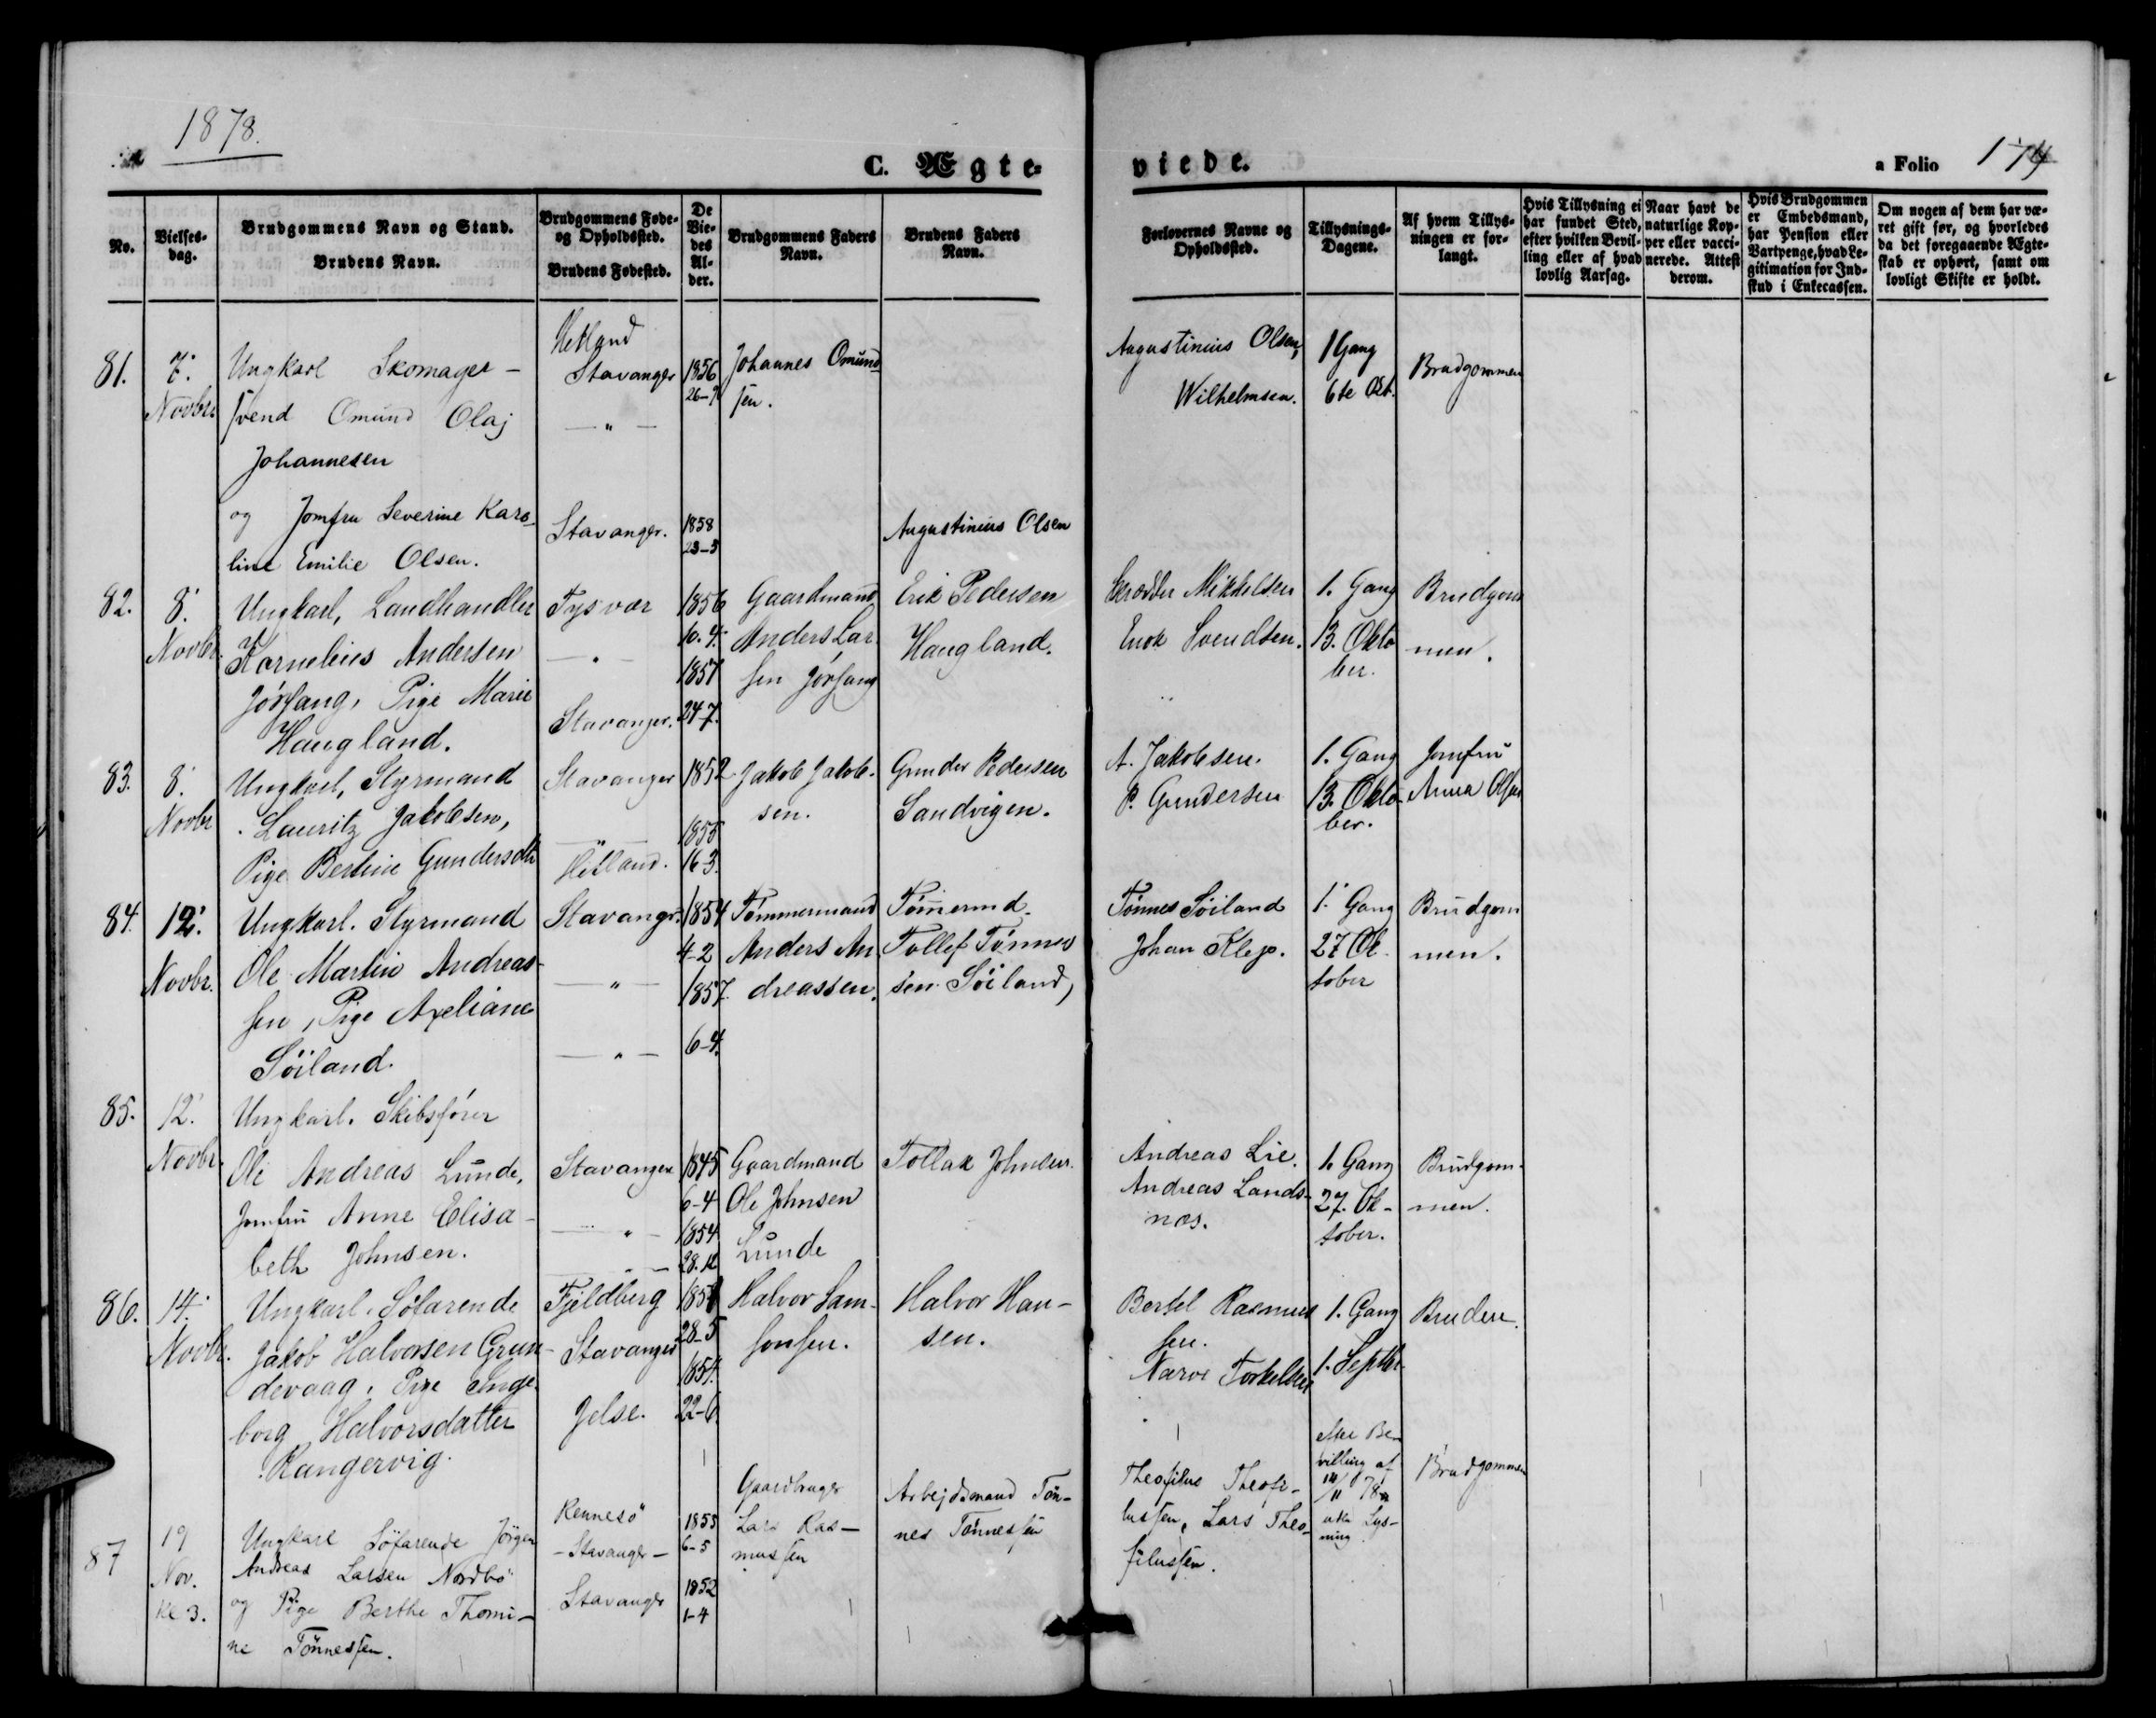 1878.
C. Ægteviede.
a Folio 174
No.
Vielsesdag.
Brudgommens Navn og Stand.
Brudens Navn.
Brudgommens Føde- og Opholdssted.
Brudens Fødested.
De Viedes Alder.
Brudgommens Faders Navn.
Brudens Faders Navn.
Forlovernes Navne og Opholdssted.
Tillysnings-Dagene.
Af hvem Tillysningen er forlangt.
Hvis Tillysning ei har fundet Sted, efter hvilken Bevilling eller af hvad lovlig Aarsag.
Naar havt de naturlige Kopper eller vaccinerede. Attest derom.
Hvis Brudgommen er Embedsmand, har Pension eller Vartpenge, hvad Legitimation for Indskud i Enkecassen.
Om nogen af dem har været gift før, og hvorledes da det foregaaende Ægteskab er ophørt, samt om lovligt Skifte er holdt.
81. 7. Novbr
Ungkarl Skomager-
svend Omund Olaj
Johannesen
og Jomfru Severine Karo-
line Emilie Olsen.
Hetland
Stavanger
— " —
Stavanger.
1856
26-9
1858
23-3
Johannes Omund
sen.
Augustinius Olsen
Augustinius Olsen,
Wilhelmsen.
1 Gang
6te Okt.
Brudgommen
82. 8. Novbr.
Ungkarl, Landhandler
Kornelius Andersen
Jørsang, Pige Marie
Haugland.
Tysvær
— " —
Stavanger.
1856
10.4.
1857
24-7.
Gaardmand
Anders Lar-
sen Jørsang
Erik Pedersen
Haugland.
Skrædder Mikkelsen
Enok Svendsen.
1. Gang
13. Okto
ber.
Brudgom
men.
83. 8. Novbr
Ungkarl, Styrmand
Lauritz Jakobsen,
Pige Bertine Gundersdtr
Stavanger
— " —
Hetland.
1852
1855
16-3.
Jakob Jakob-
sen.
Gunder Pedersen
Sandvigen.
A. Jakobsen.
P. Gundersen
1. Gang
13. Okto-
ber.
Jomfru
Anna Olsen
84. 12. Novbr.
Ungkarl. Styrmand
Ole Martin Andreas-
sen, Pige Axeliane
Söiland.
Stavanger.
— " —
— " —
1854
4-2
1857.
6-4.
Tømmermand
Anders An
dreassen.
Tømermd.
Tollef Tønnes
sen Söiland,
Tønnes Söiland
Johan Klep.
1. Gang
27 Ok
tober
Brudgom
men.
85. 12. Novbr.
Ungkarl. Skibsfører
Ole Andreas Lunde,
Jomfru Anne Elisa-
beth Johnsen.
Stavanger
— " —
— " —
1845
6-4
1854
28.12
Gaardmand
Ole Johnsen
Lunde
Tollak Johnsen.
Andreas Lie.
Andreas Lands-
næs.
1. Gang
27. Ok-
tober.
Brudgom-
men.
86. 14. Novbr.
Ungkarl. Söfarende
Jakob Halvorsen Grun-
devaag. Pige Inge-
borg Halvorsdatter
Rangervig.
Fjeldberg
Stavanger
Jelse.
1854
28-5
1854.
22-6
Halvor Sam-
sonsen.
Halvor Han-
sen.
Bertel Rasmus
sen.
Narve Torkelsen
1. Gang
1. Septbr.
Bruden.
87 19 Nov. Kl 3.
Ungkarl Söfarende Jörgen
Andreas Larsen Nordbö
og Pige Berthe Thomi-
ne Tönnessen.
Rennesö
- Stavanger -
Stavanger
1855
6-5
1852
1-4
Gaardbruger
Lars Ras-
mussen
Arbejdsmand Tön-
nes Tönnessen
Theofilus Theofi-
lussen, Lars Theo-
filussen.
efter Be-
villing af
14/11 78
uden Lys-
ning.
Brudgommen